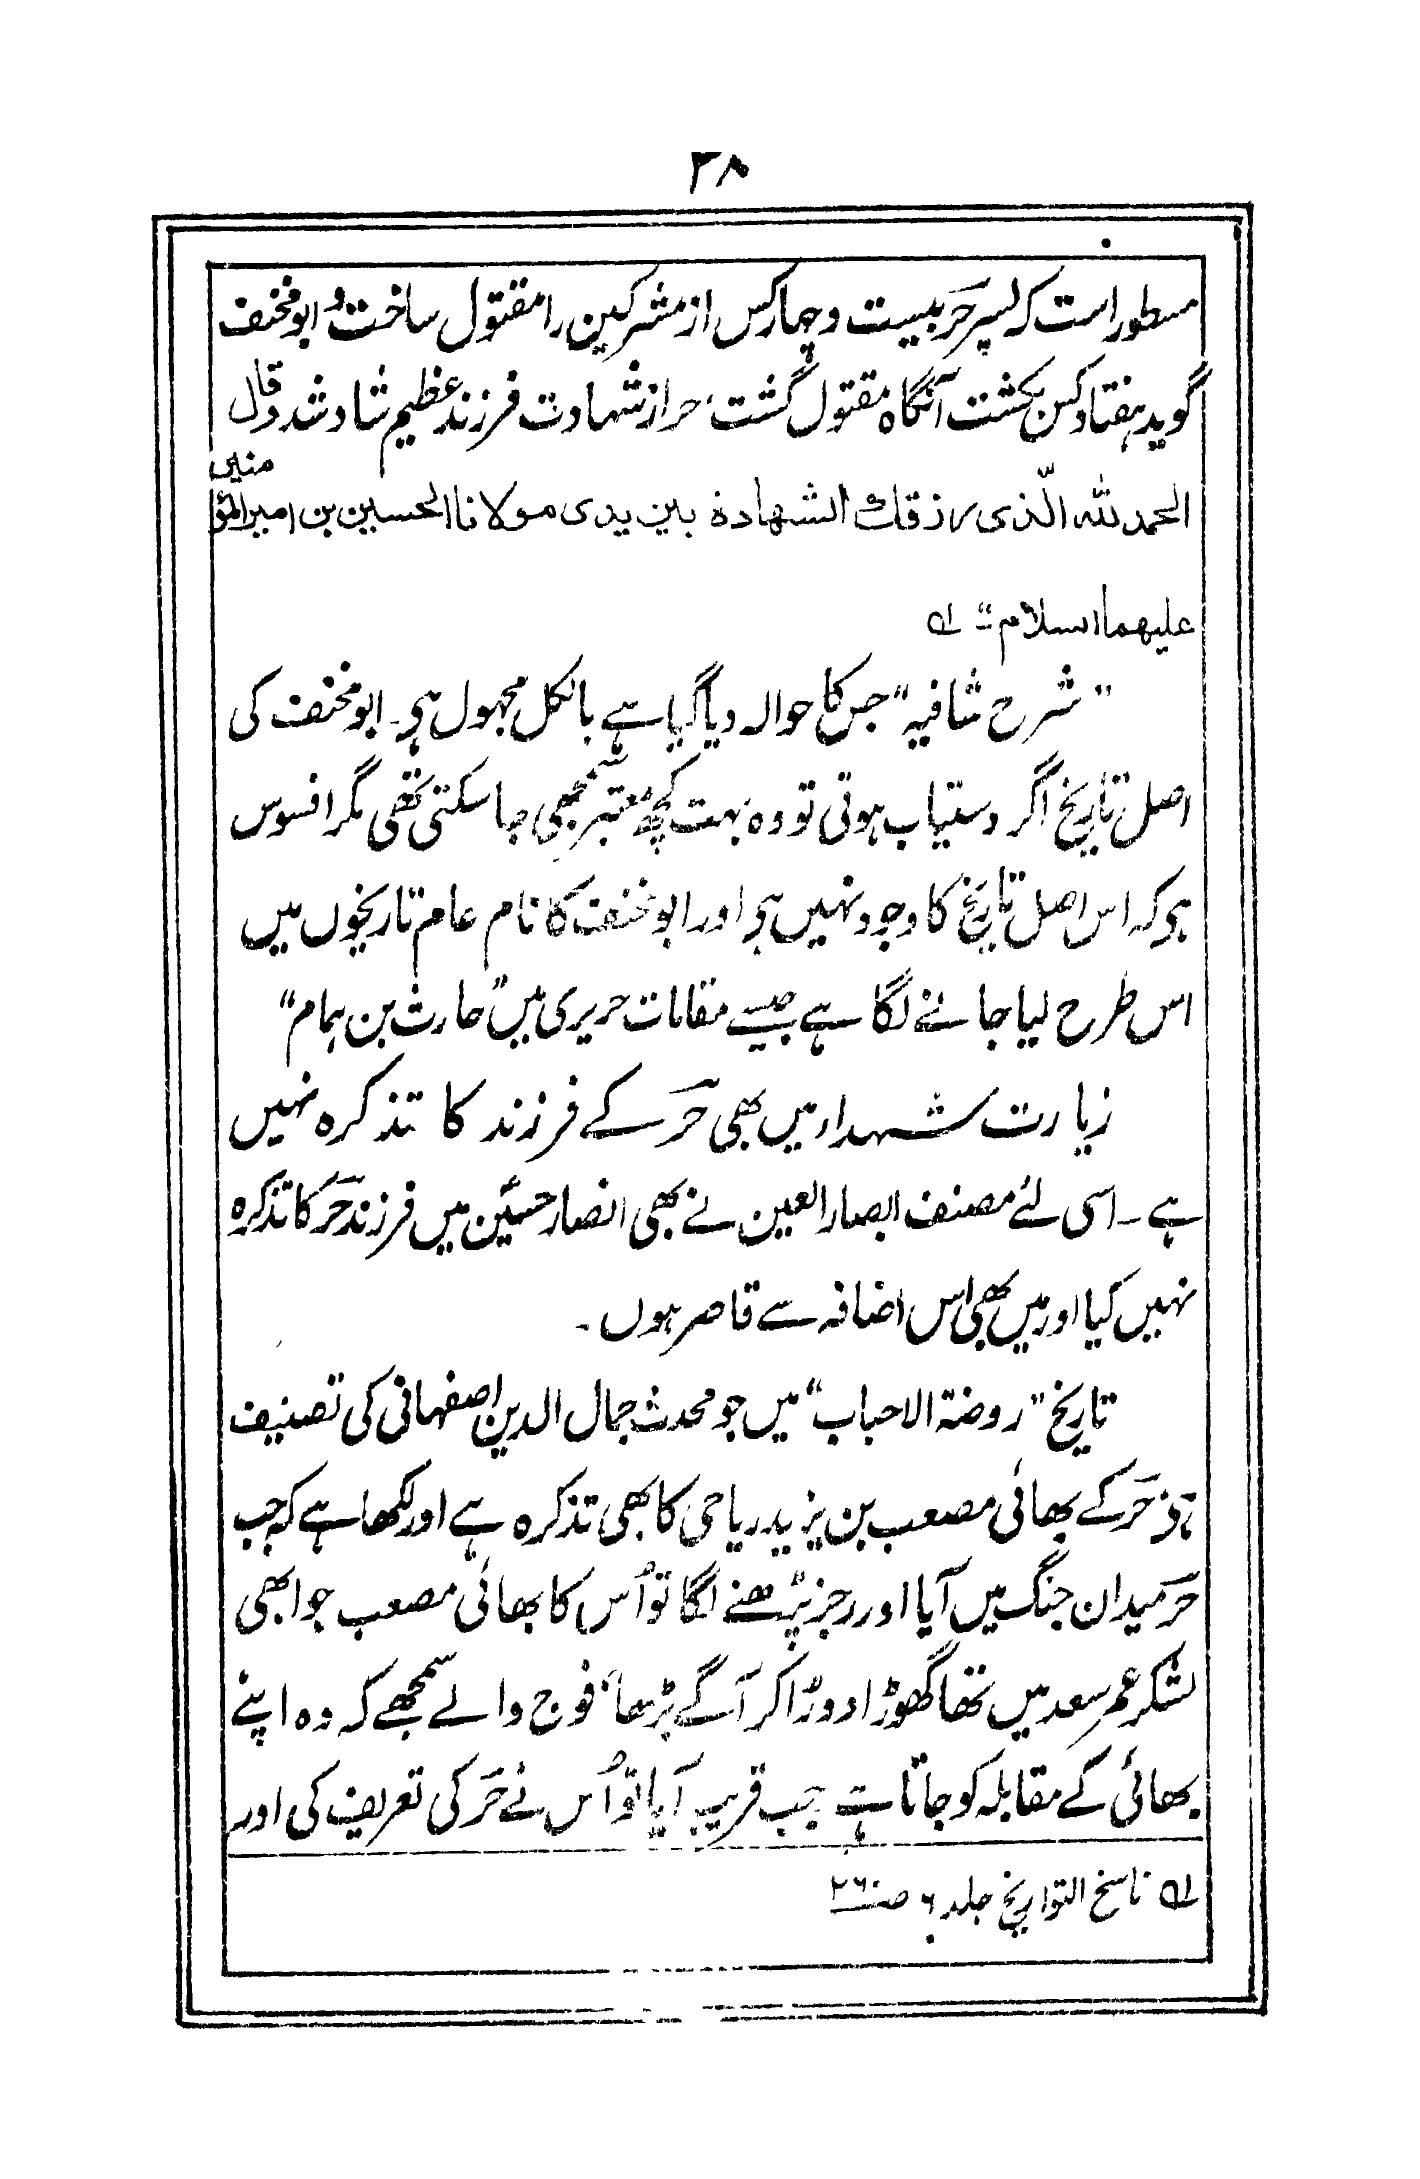 ۳۸
مسطور است کہ پسر حر بیست و چہار کس از مشرکین را مقتول ساخت و ابو مخنف
گوید ہفتاد کس بکشت آنگاہ مقتول گشت، حر از شہادت فرزند عظیم شاد شد و قال
الحمد للہ الّذی رزقك الشهادة بین یدی مولانا الحسین بن امیر المؤمنین
علیهما السلام" لہ
"شرح شافیہ" جس کا حوالہ دیا گیا ہے بالکل مجہول ہی۔ ابو مخنف کی
اصل تاریخ اگر دستیاب ہوتی تو وہ بہت کچھ معتبر سمجھی جا سکتی تھی مگر افسوس
ہی کہ اس اصل تاریخ کا وجود نہیں ہی اور ابو مخنف کا نام عام تاریخوں میں
اس طرح لیا جانے لگا ہے جیسے مقامات حریری میں "حارث بن ہمام"
زیارت شہداء میں بھی حر کے فرزند کا تذکرہ نہیں
ہے۔ اسی لئے مصنف ابصار العین نے بھی انصار حسینؑ میں فرزند حر کا تذکرہ
نہیں کیا اور میں بھی اس اضافہ سے قاصر ہوں۔
تاریخ "روضۃ الاحباب" میں جو محدث جمال الدین اصفہانی کی تصنیف
ہی حر کے بھائی مصعب بن یزید ریاحی کا بھی تذکرہ ہے اور لکھا ہے کہ جب
حر میدان جنگ میں آیا اور رجز پڑھنے لگا تو اُس کا بھائی مصعب جو ابھی
لشکر عمر سعد میں تھا گھوڑا دوڑا کر آگے بڑھا، فوج والے سمجھے کہ وہ اپنے
بھائی کے مقابلہ کو جاتا ہے جب قریب آیا تو اُس نے حر کی تعریف کی اور
لہ ناسخ التواریخ جلد ۶ صـ۲۶